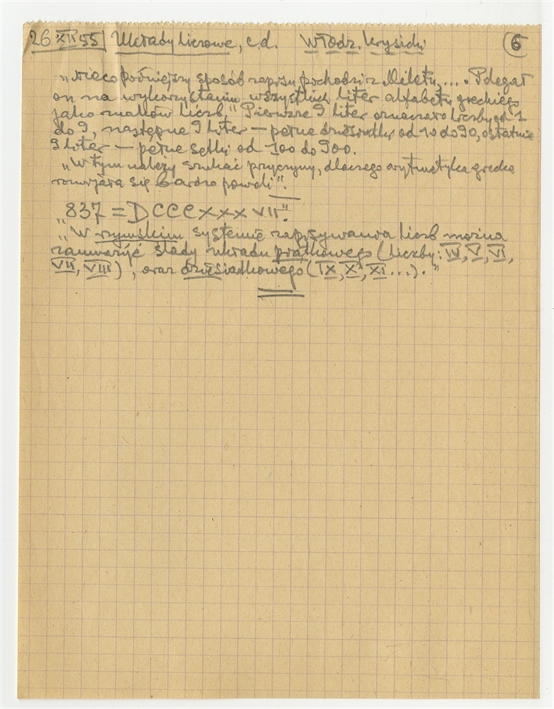 26 XII 55 Układy liczowe, c.d. Włodz. Krysicki 6
„nieco późniejszy sposób zapisu pochodzi z Miletu, .... Polegał
on na wykorzystaniu wszystkich liter alfabetu greckiego
jako znaków liczb.” „Pierwsze 9 liter oznaczało liczby od 1
do 9, następne 9 liter — pełne dziesiątki od 10 do 90, ostatnie
9 liter — pełne setki od 100 do 900.
„W tym należy szukać przyczyny, dlaczego arytmetyka grecka
rozwijała się bardzo powoli”.
„837 = DCCCXXXVII”.
„W rzymskim systemie zapisywania liczb można
zauważyć ślady układu piątkowego (liczby: IV, V, VI,
VII, VIII), oraz dziesiątkowego (IX, X, XI ...).”